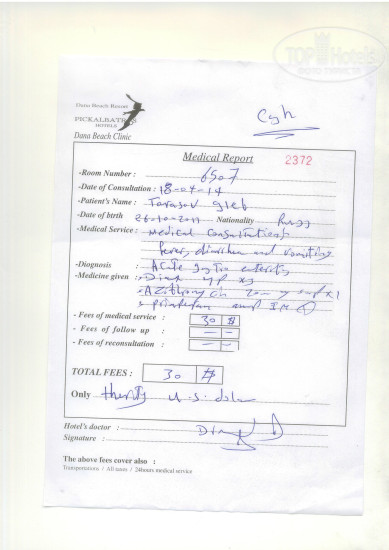 TOPHotels
Cash
Dana Beach Resort
PICKALBATROS
HOTELS
Dana Beach Clinic
Medical Report 2372
-Room Number : 6507
-Date of Consultation : 18-07-14
-Patient's Name : Tarasov gleb
-Date of birth 26-10-2011 Nationality Russ
-Medical Service : Medical Consultations
fever, diarrhea and vomiting
-Diagnosis : Acute gastro enteritis
-Medicine given :
- Fees of medical service : 30 $
- Fees of follow up : – –
- Fees of reconsultation : – –
TOTAL FEES : 30 $
Only thirty U.S. dolar
Hotel's doctor :
Signature :
The above fees cover also :
Transportation / All taxes / 24hours medical service